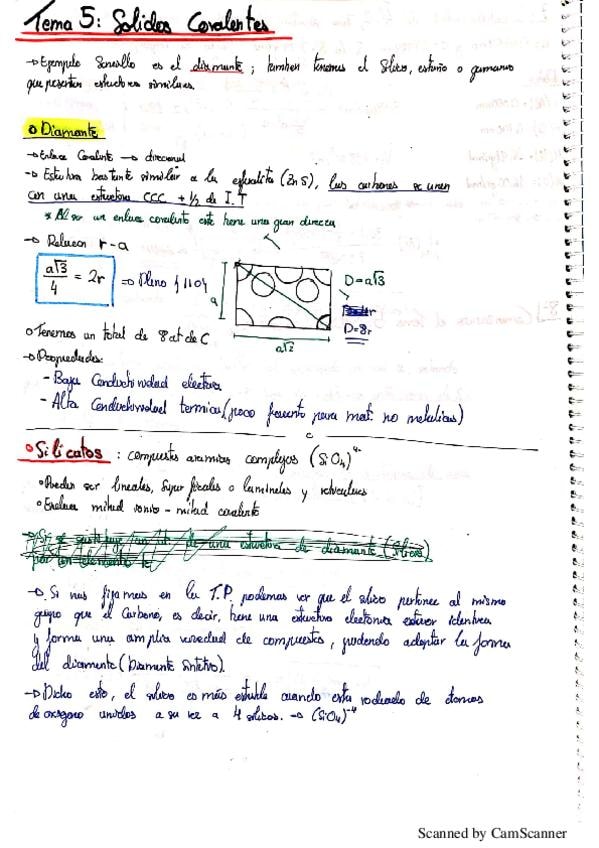 Tema 5: Solidos Covalentes
→ Ejemplo Sencillo es el diamante; tambien tenemos el Silicio, estaño o germanio
que presentan estructuras similares.
Diamante
→ Enlace Covalente → direccional
→ Estructura bastante similar a la esfalerita (ZnS), los carbonos se unen
con una estructura CCC + 1/2 de I.T
* Al ser un enlace covalente este tiene una gran direcca
→ Relacion r-a
a√3/4 = 2r ⇒ Plano {110}
a
a√2
D=a√3
D=8r
Tenemos un total de 8 at de C
→ Propiedades:
- Baja Conductividad electrica
- Alta Conductividad termica (poco frecuente para mat. no metalicos)
Silicatos : compuestos complejos (SiO4)4-
Pueden ser lineales, o laminales y
Enlace mitad ionico - mitad covalente
→ Si nos fijamos en la T.P. podemos ver que el silicio pertenece al mismo
grupo que el Carbono, es decir, tiene una estructura electronica exterior identica
y forma una amplia variedad de compuestos, pudiendo adoptar la forma
del diamante (Diamante Sintetico).
→ Dicho esto, el silicio es más estable cuando esta rodeado de atomos
de oxigeno unidos a su vez a 4 silicios. → (SiO4)-4
Scanned by CamScanner